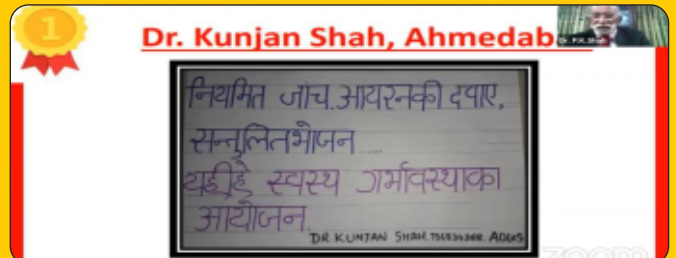 1
Dr. Kunjan Shah, Ahmedab
नियमित जांच.आयरनकी दवाए,
सन्तुलितभोजन.....
यहीहै स्वस्थ गर्भावस्थाका
आयोजन.
DR. KUNJAN SHAH. AOGS
zoom